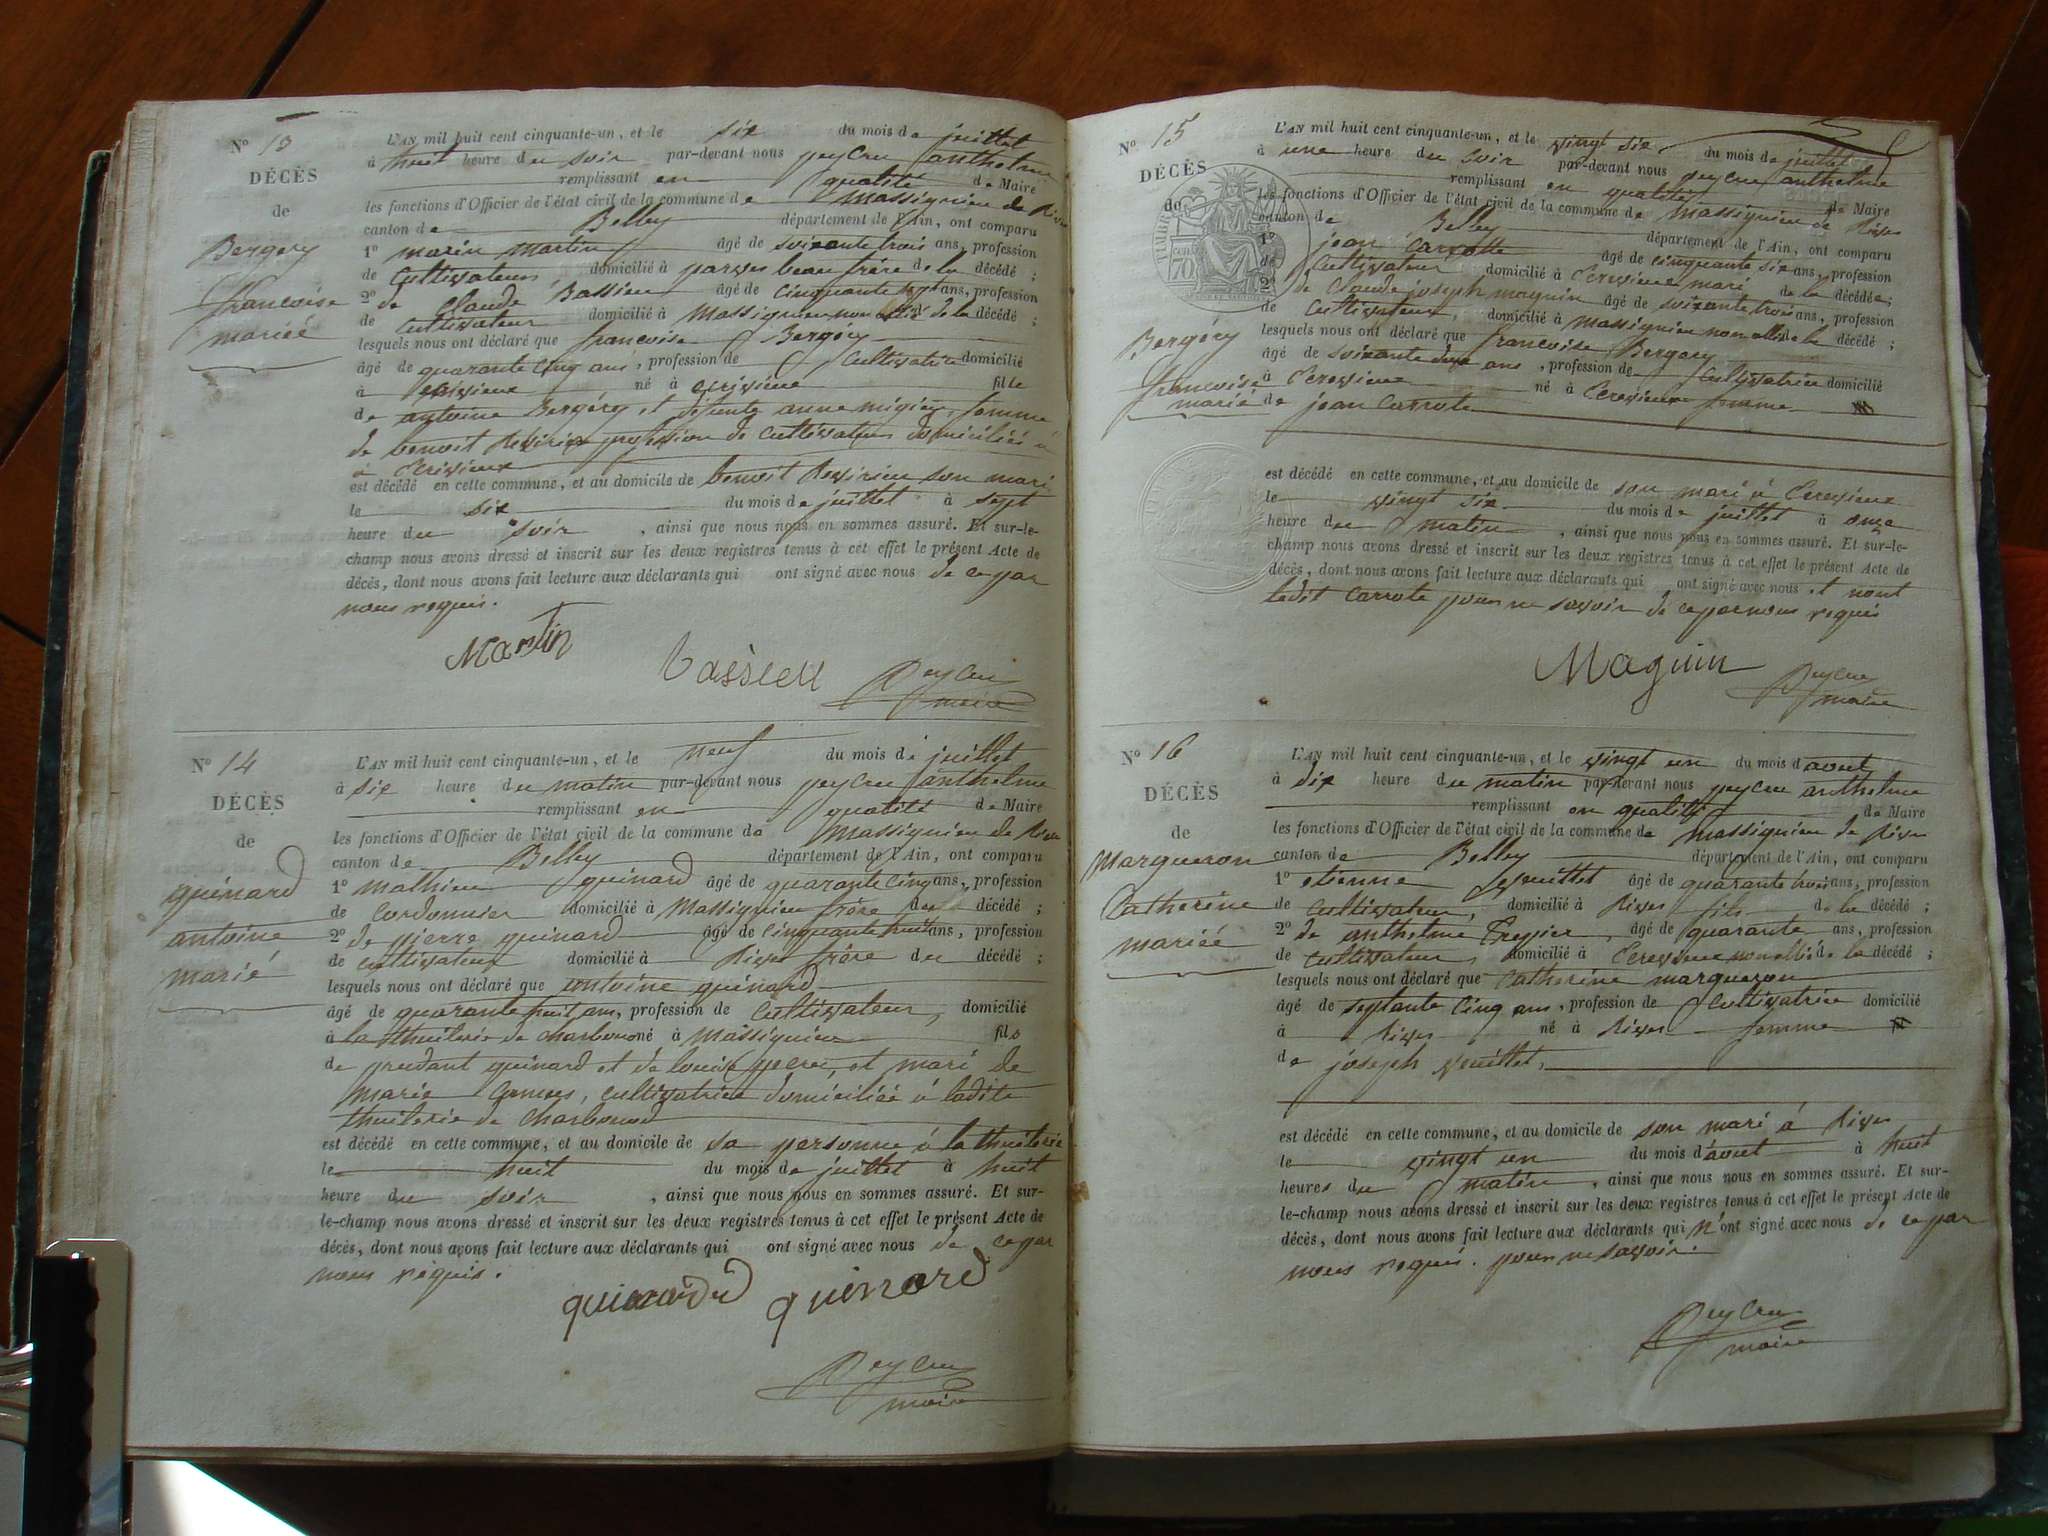 N° 13
DÉCÈS
de
Bergery
françoise
mariée
L'AN mil huit cent cinquante-un, et le six du mois de juillet
à huit heure du soir par-devant nous peycru anthelme
remplissant en qualité de Maire
les fonctions d'Officier de l'état civil de la commune de Massignieu de Rives
canton de Belley département de l'Ain, ont comparu
1° marin martin âgé de soixante trois ans, profession
de Cultivateur domicilié à parves beau frère de la décédé ;
2° de Claude Bassieu âgé de Cinquante sept ans, profession
de Cultivateur domicilié à Massignieu non allié de la décédé ;
lesquels nous ont déclaré que françoise Bergéry
âgé de quarante Cinq ans, profession de Cultivatrice domicilié
à né à fille
de antoine Bergéry et défunte anne migieu, femme
de benoit profession de Cultivateur domicilié à
à
est décédé en cette commune, et au domicile de benoit son mari
le six du mois de juillet à sept
heure du soir, ainsi que nous nous en sommes assuré. Et sur-le-
champ nous avons dressé et inscrit sur les deux registres tenus à cet effet le présent Acte de
décès, dont nous avons fait lecture aux déclarants qui ont signé avec nous de ce par
nous requis.
Martin
bassieu
Peycru
maire
N° 14
DÉCÈS
de
guinard
antoine
marié
L'AN mil huit cent cinquante-un, et le neuf du mois de juillet
à six heure du matin par-devant nous peycru anthelme
remplissant en qualité de Maire
les fonctions d'Officier de l'état civil de la commune de Massignieu de Rives
canton de Belley département de l'Ain, ont comparu
1° mathieu guinard âgé de quarante Cinq ans, profession
de Cordonnier domicilié à Massignieu frère du décédé ;
2° de pierre guinard âgé de Cinquante huit ans, profession
de cultivateur domicilié à Rives frère du décédé ;
lesquels nous ont déclaré que antoine guinard
âgé de quarante huit ans, profession de Cultivateur, domicilié
à la thuilerie de charbonod né à Massignieu fils
de prudant guinard et de louise peicru, et mari de
Marie, cultivatrice domiciliée à ladite
thuilerie de charbonod
est décédé en cette commune, et au domicile de sa personne à la thuilerie
le huit du mois de juillet à huit
heure du soir, ainsi que nous nous en sommes assuré. Et sur-
le-champ nous avons dressé et inscrit sur les deux registres tenus à cet effet le présent Acte de
décès, dont nous avons fait lecture aux déclarants qui ont signé avec nous de ce par
nous requis.
guinard guinard
Peycru
maire
N° 15
DÉCÈS
de
Bergéry
françoise
marié
L'AN mil huit cent cinquante-un, et le vingt six du mois de juillet
à une heure du soir par-devant nous peycru anthelme
remplissant en qualité de Maire
les fonctions d'Officier de l'état civil de la commune de Massignieu de Rives
canton de Belley département de l'Ain, ont comparu
1° jean Carrotte âgé de cinquante six ans, profession
de Cultivateur domicilié à Cerevieux mari de la décédée ;
2° de Claude joseph maguin âgé de soixante trois ans, profession
de Cultivateur, domicilié à Massignieu non allié de la décédé ;
lesquels nous ont déclaré que françoise Bergery
âgé de soixante deux ans, profession de Cultivatrice domicilié
à Cerevieux né à Cerevieux femme
de jean Carrote
est décédé en cette commune, et au domicile de son mari à Cerevieux
le vingt six du mois de juillet à onze
heure du matin, ainsi que nous nous en sommes assuré. Et sur-le-
champ nous avons dressé et inscrit sur les deux registres tenus à cet effet le présent Acte de
décès, dont nous avons fait lecture aux déclarants qui ont signé avec nous et nont
ledit Carrote pour ne savoir de ce par nous requis
Maguin
Peycru
maire
N° 16
DÉCÈS
de
Margueron
Catherine
mariée
L'AN mil huit cent cinquante-un, et le vingt un du mois d'aout
à dix heure du matin par-devant nous peycru anthelme
remplissant en qualité de Maire
les fonctions d'Officier de l'état civil de la commune de Massignieu de Rives
canton de Belley département de l'Ain, ont comparu
1° etienne âgé de quarante trois ans, profession
de Cultivateur, domicilié à Rives fils de la décédé ;
2° de anthelme âgé de quarante ans, profession
de Cultivateur, domicilié à Cerevieux non allié de la décédé ;
lesquels nous ont déclaré que Catherine margueron
âgé de septante Cinq ans, profession de Cultivatrice domicilié
à Rives né à Rives femme
de joseph
est décédé en cette commune, et au domicile de son mari à Rives
le vingt un du mois d'aout à huit
heures du matin, ainsi que nous nous en sommes assuré. Et sur-
le-champ nous avons dressé et inscrit sur les deux registres tenus à cet effet le présent Acte de
décès, dont nous avons fait lecture aux déclarants qui n'ont signé avec nous de ce par
nous requis. pour ne savoir.
Peycru
maire